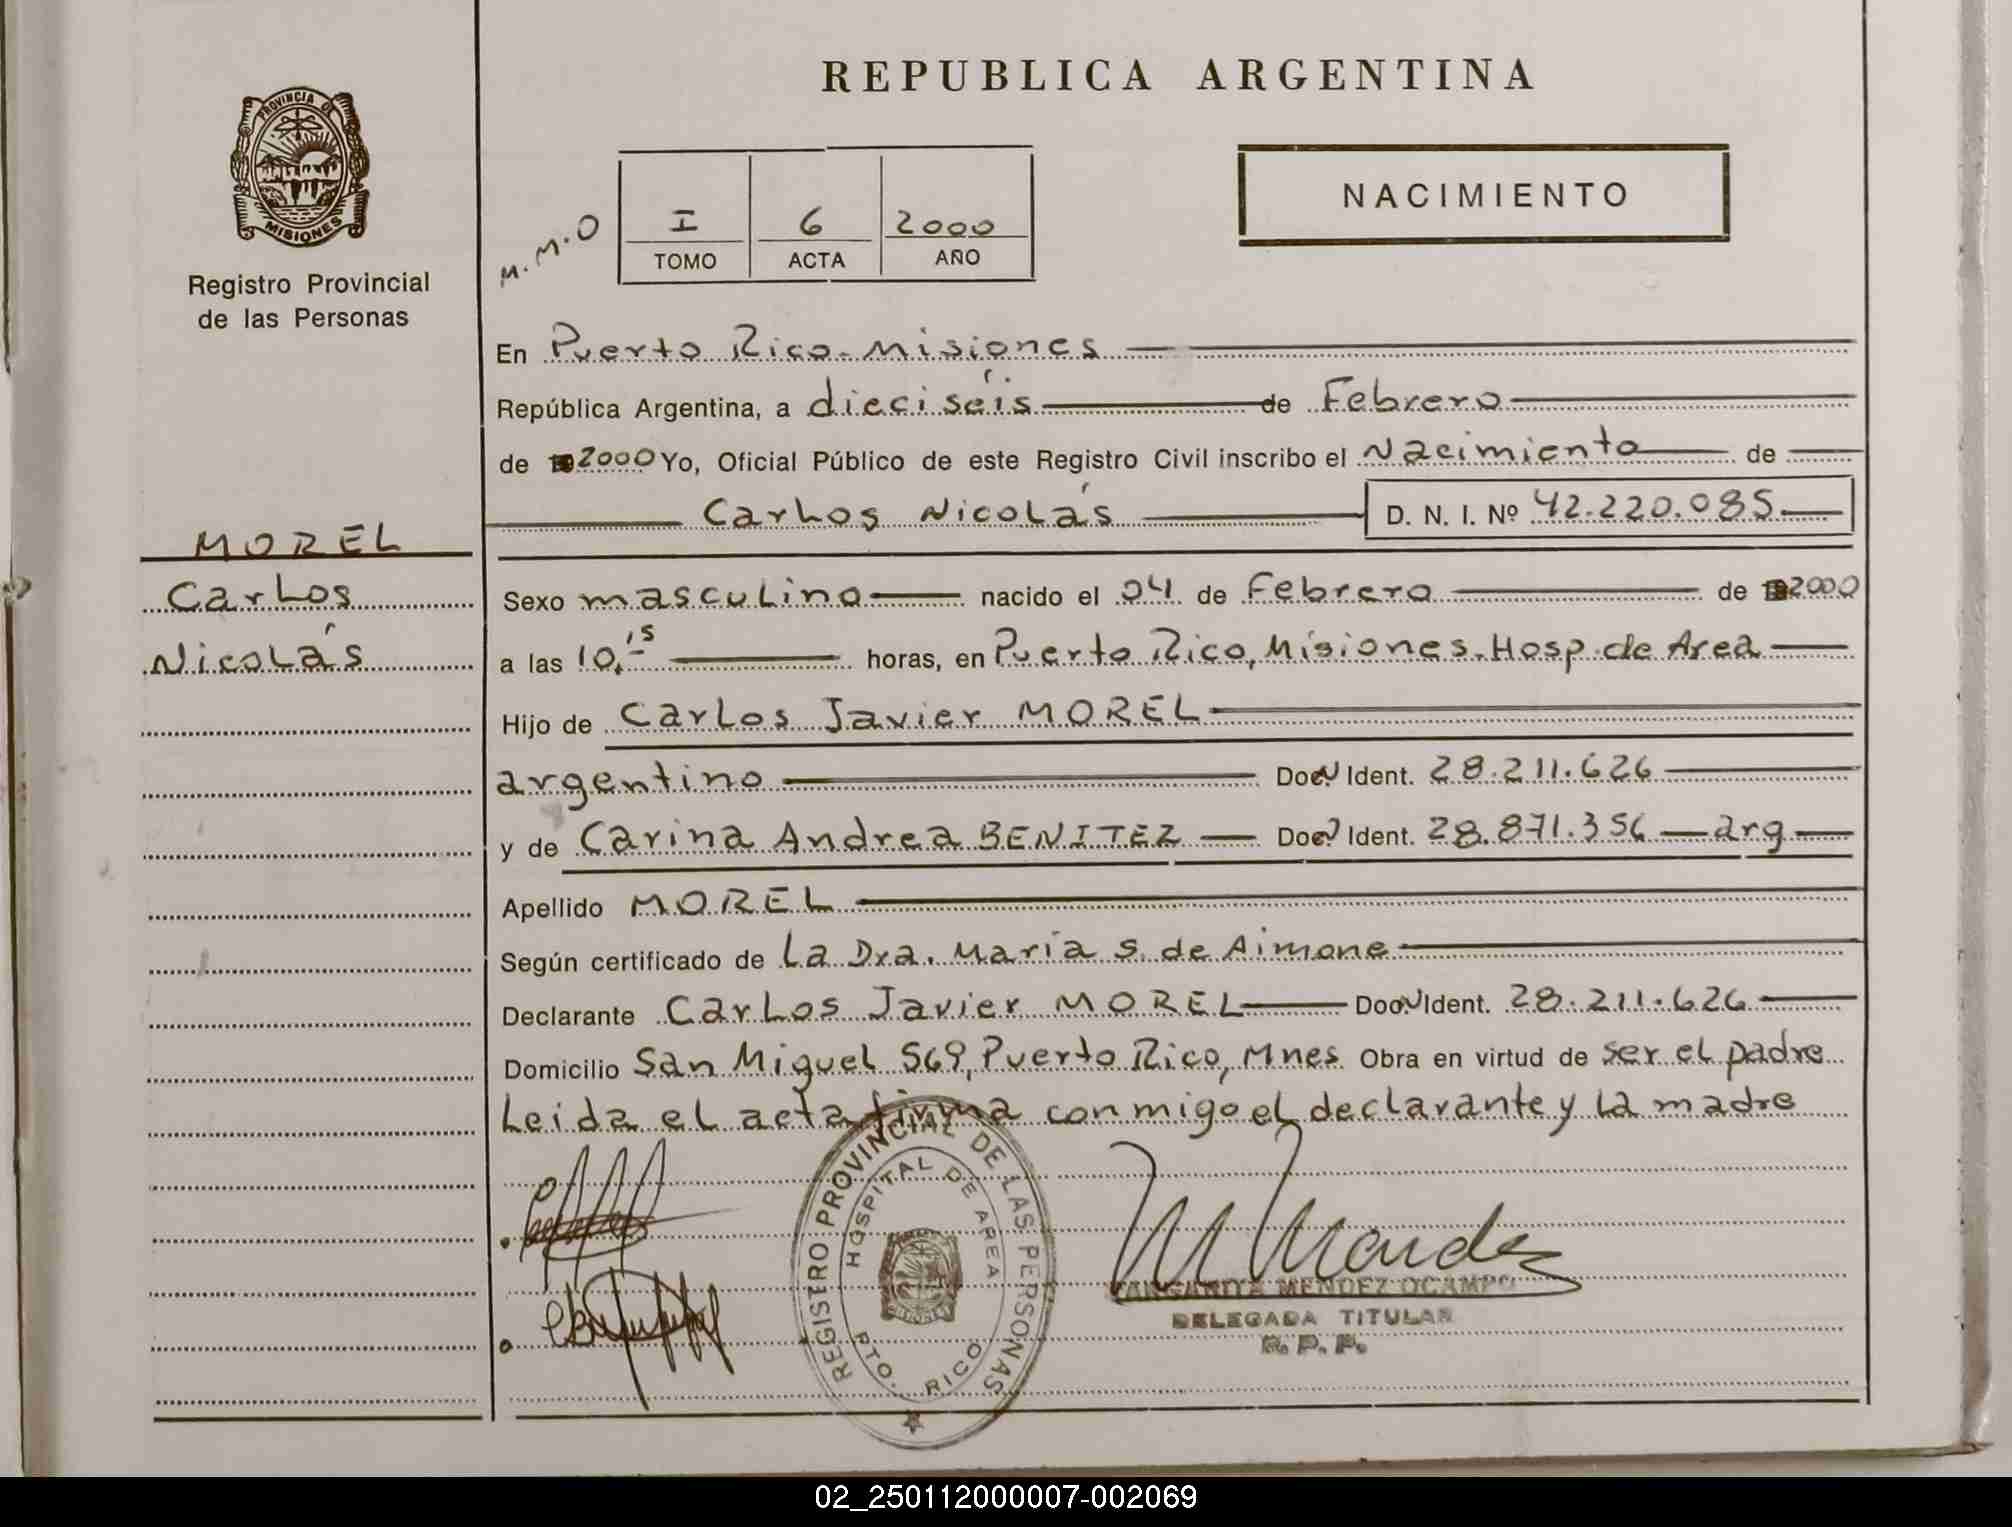 REPUBLICA ARGENTINA
PROVINCIA DE
MISIONES
Registro Provincial
de las Personas
NACIMIENTO
M.M.O
I 6 2000
TOMO ACTA AÑO
En Puerto Rico-Misiones
República Argentina, a dieciséis de Febrero
de 2000 Yo, Oficial Público de este Registro Civil inscribo el Nacimiento de
Carlos Nicolás D. N. I. Nº 42.220.085
MOREL
Carlos
Nicolás
Sexo masculino nacido el 04 de Febrero de 2000
a las 10,15 horas, en Puerto Rico, Misiones. Hosp. de Area
Hijo de Carlos Javier MOREL
argentino Doc. Ident. 28.211.626
y de Carina Andrea BENITEZ Doc. Ident. 28.871.356 arg
Apellido MOREL
Según certificado de La Dra. María S. de Aimone
Declarante Carlos Javier MOREL Doc. Ident. 28.211.626
Domicilio San Miguel 569, Puerto Rico, Mnes. Obra en virtud de ser el padre
Leida el acta firma conmigo el declarante y la madre
REGISTRO PROVINCIAL DE LAS PERSONAS
HOSPITAL DE AREA
PTO. RICO
MARGARITA MENDEZ OCAMPO
DELEGADA TITULAR
R. P. P.
02_250112000007-002069